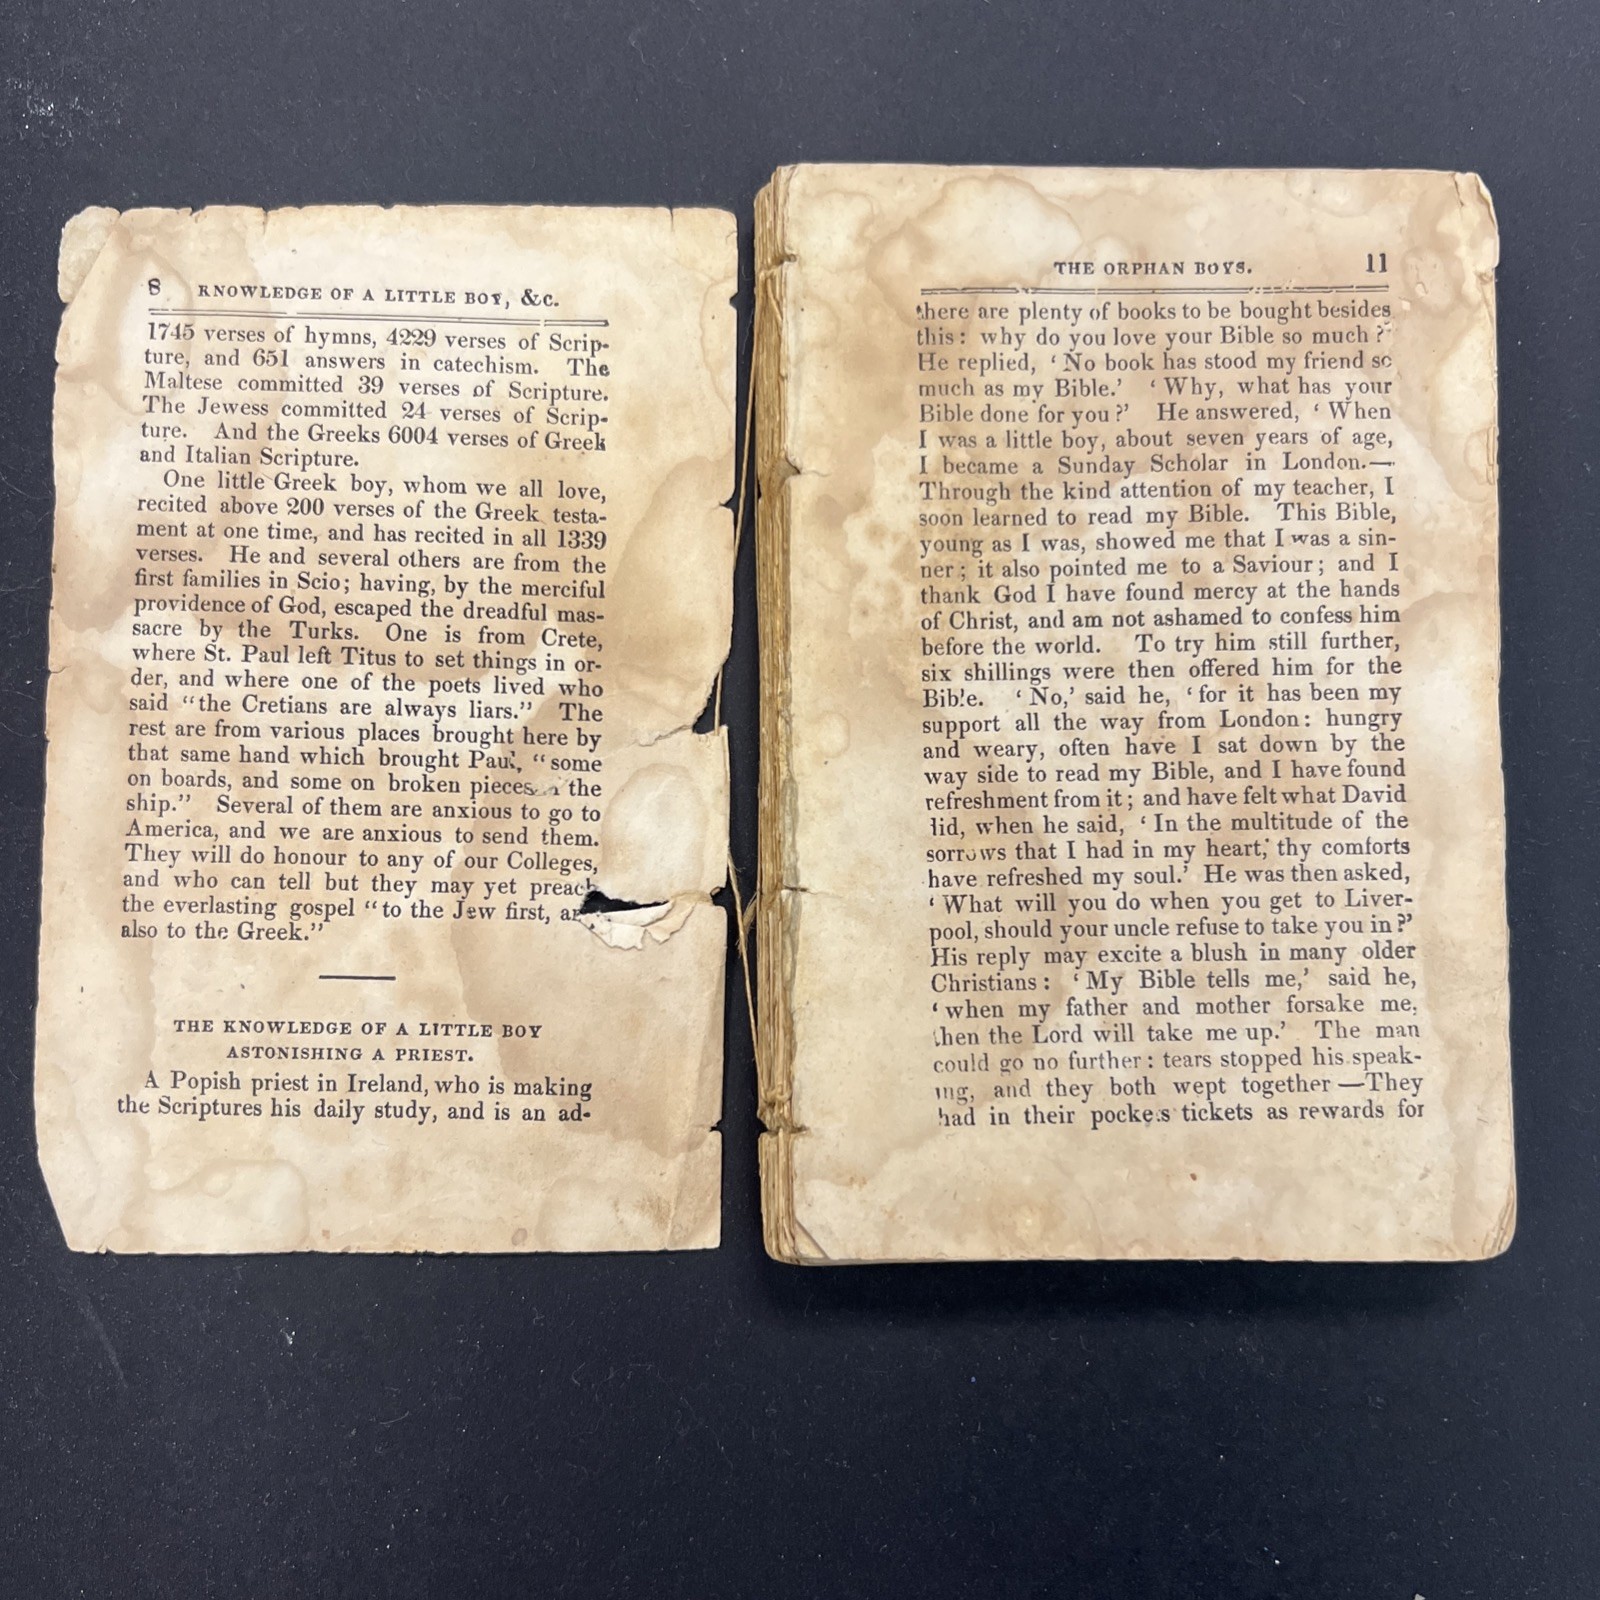 8 KNOWLEDGE OF A LITTLE BOY, &c.
1745 verses of hymns, 4229 verses of Scrip-
ture, and 651 answers in catechism. The
Maltese committed 39 verses of Scripture.
The Jewess committed 24 verses of Scrip-
ture. And the Greeks 6004 verses of Greek
and Italian Scripture.
One little Greek boy, whom we all love,
recited above 200 verses of the Greek testa-
ment at one time, and has recited in all 1339
verses. He and several others are from the
first families in Scio; having, by the merciful
providence of God, escaped the dreadful mas-
sacre by the Turks. One is from Crete,
where St. Paul left Titus to set things in or-
der, and where one of the poets lived who
said "the Cretians are always liars." The
rest are from various places brought here by
that same hand which brought Paul, "some
on boards, and some on broken pieces the
ship." Several of them are anxious to go to
America, and we are anxious to send them.
They will do honour to any of our Colleges,
and who can tell but they may yet preach
the everlasting gospel "to the Jew first,
also to the Greek."
THE KNOWLEDGE OF A LITTLE BOY
ASTONISHING A PRIEST.
A Popish priest in Ireland, who is making
the Scriptures his daily study, and is an ad-
THE ORPHAN BOYS. 11
there are plenty of books to be bought besides
this: why do you love your Bible so much?'
He replied, 'No book has stood my friend so
much as my Bible.' 'Why, what has your
Bible done for you?' He answered, 'When
I was a little boy, about seven years of age,
I became a Sunday Scholar in London.—
Through the kind attention of my teacher, I
soon learned to read my Bible. This Bible,
young as I was, showed me that I was a sin-
ner; it also pointed me to a Saviour; and I
thank God I have found mercy at the hands
of Christ, and am not ashamed to confess him
before the world. To try him still further,
six shillings were then offered him for the
Bible. 'No,' said he, 'for it has been my
support all the way from London: hungry
and weary, often have I sat down by the
way side to read my Bible, and I have found
refreshment from it; and have felt what David
did, when he said, 'In the multitude of the
sorrows that I had in my heart, thy comforts
have refreshed my soul.' He was then asked,
'What will you do when you get to Liver-
pool, should your uncle refuse to take you in?'
His reply may excite a blush in many older
Christians: 'My Bible tells me,' said he,
'when my father and mother forsake me,
then the Lord will take me up.' The man
could go no further: tears stopped his speak-
ing, and they both wept together—They
had in their pockets tickets as rewards for